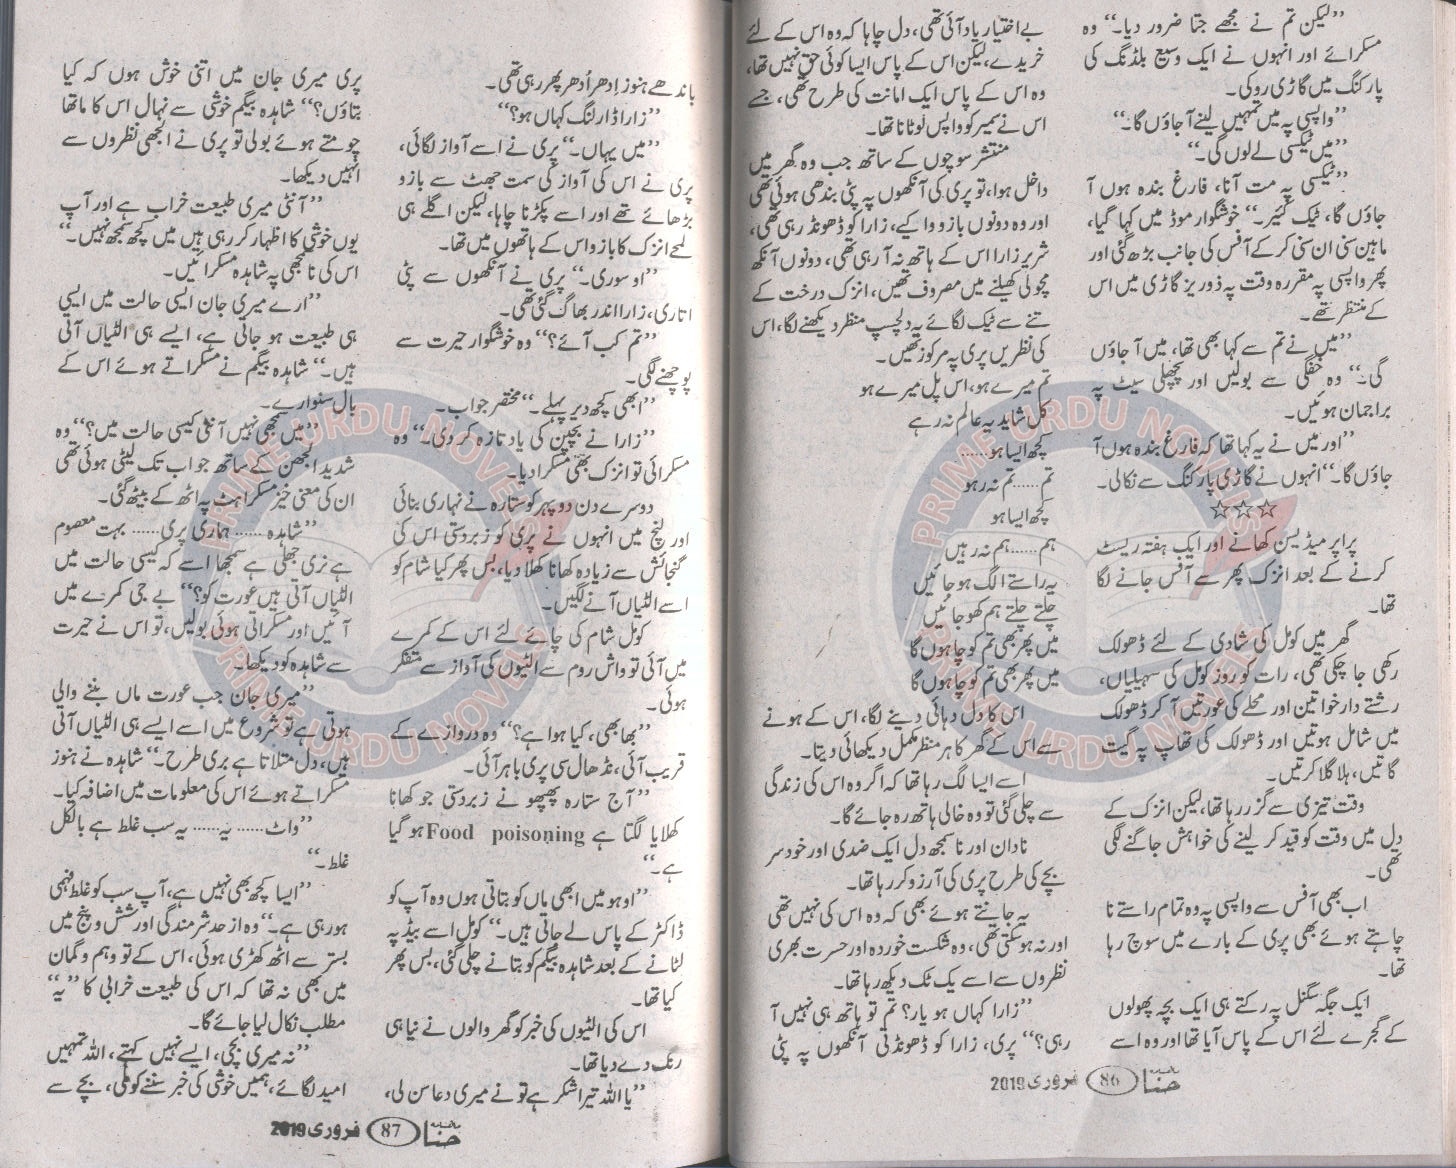 ”لیکن تم نے مجھے جتا ضرور دیا۔“ وہ
مسکرائے اور انہوں نے ایک وسیع بلڈنگ کی
پارکنگ میں گاڑی روکی۔
”واپسی پہ میں تمہیں لینے آ جاؤں گا۔“
”میں ٹیکسی لے لوں گی۔“
”ٹیکسی پہ مت آنا، فارغ بندہ ہوں آ
جاؤں گا، ٹیک کیئر۔“ خوشگوار موڈ میں کہا گیا،
ماہین سنی ان سنی کر کے آفس کی جانب بڑھ گئی اور
پھر واپسی پہ مقررہ وقت پہ ذوریز گاڑی میں اس
کے منتظر تھے۔
”میں نے تم سے کہا بھی تھا، میں آ جاؤں
گی۔“ وہ خفگی سے بولیں اور پچھلی سیٹ پہ
براجمان ہوئیں۔
”اور میں نے یہ کہا تھا کہ فارغ بندہ ہوں آ
جاؤں گا۔“ انہوں نے گاڑی پارکنگ سے نکالی۔
☆☆☆
پراپر میڈیسن کھانے اور ایک ہفتہ ریسٹ
کرنے کے بعد انزک پھر سے آفس جانے لگا
تھا۔
گھر میں کومل کی شادی کے لئے ڈھولک
رکھی جا چکی تھی، رات کو روز کومل کی سہیلیاں،
رشتے دار خواتین اور محلے کی عورتیں آ کر ڈھولک
میں شامل ہوتیں اور ڈھولک کی تھاپ پہ گیت
گاتیں، ہلا گلا کرتیں۔
وقت تیزی سے گزر رہا تھا، لیکن انزک کے
دل میں وقت کو قید کر لینے کی خواہش جاگنے لگی
تھی۔
اب بھی آفس سے واپسی پہ وہ تمام راستے نا
چاہتے ہوئے بھی پری کے بارے میں سوچ رہا
تھا۔
ایک جگہ سگنل پہ رکتے ہی ایک بچہ پھولوں
کے گجرے لئے اس کے پاس آیا تھا اور وہ اسے
بے اختیار یاد آئی تھی، دل چاہا کہ وہ اس کے لئے
خریدے، لیکن اس کے پاس ایسا کوئی حق نہیں تھا،
وہ اس کے پاس ایک امانت کی طرح تھی، جسے
اس نے سمیر کو واپس لوٹانا تھا۔
منتشر سوچوں کے ساتھ جب وہ گھر میں
داخل ہوا، تو پری کی آنکھوں پہ پٹی بندھی ہوئی تھی
اور وہ دونوں بازو وا کیے، زارا کو ڈھونڈ رہی تھی،
شریر زارا اس کے ہاتھ نہ آ رہی تھی، دونوں آنکھ
مچولی کھیلنے میں مصروف تھیں، انزک درخت کے
تنے سے ٹیک لگائے یہ دلچسپ منظر دیکھنے لگا، اس
کی نظریں پری پہ مرکوز تھیں۔
تم میرے ہو، اس پل میرے ہو
کل شاید یہ عالم نہ رہے
کچھ ایسا ہو......
تم...... تم نہ رہو
کچھ ایسا ہو
ہم...... ہم نہ رہیں
یہ راستے الگ ہو جائیں
چلتے چلتے ہم کھو جائیں
میں پھر بھی تم کو چاہوں گا
میں پھر بھی تم کو چاہوں گا
اس کا دل دہائی دینے لگا، اس کے ہونے
سے اس کے گھر کا ہر منظر مکمل دیکھائی دیتا۔
اسے ایسا لگ رہا تھا کہ اگر وہ اس کی زندگی
سے چلی گئی تو وہ خالی ہاتھ رہ جائے گا۔
نادان اور ناسمجھ دل ایک ضدی اور خود سر
بچے کی طرح پری کی آرزو کر رہا تھا۔
یہ جانتے ہوئے بھی کہ وہ اس کی نہیں تھی
اور نہ ہو سکتی تھی، وہ شکست خوردہ اور حسرت بھری
نظروں سے اسے یک ٹک دیکھ رہا تھا۔
”زارا کہاں ہو یار؟ تم تو ہاتھ ہی نہیں آ
رہی؟“ پری، زارا کو ڈھونڈتی آنکھوں پہ پٹی
ماہنامہ حنا 86 فروری 2019
باندھے ہنوز اِدھر اُدھر پھر رہی تھی۔
”زارا ڈارلنگ کہاں ہو؟“
”میں یہاں۔“ پری نے اسے آواز لگائی،
پری نے اس کی آواز کی سمت جھٹ سے بازو
بڑھائے تھے اور اسے پکڑنا چاہا، لیکن اگلے ہی
لمحے انزک کا بازو اس کے ہاتھوں میں تھا۔
”او سوری۔“ پری نے آنکھوں سے پٹی
اتاری، زارا اندر بھاگ گئی تھی۔
”تم کب آئے؟“ وہ خوشگوار حیرت سے
پوچھنے لگی۔
”ابھی کچھ دیر پہلے۔“ مختصر جواب۔
”زارا نے بچپن کی یاد تازہ کر دی۔“ وہ
مسکرائی تو انزک بھی مسکرا دیا۔
دوسرے دن دوپہر کو ستارہ نے نہاری بنائی
اور لنچ میں انہوں نے پری کو زبردستی اس کی
گنجائش سے زیادہ کھانا کھلا دیا، بس پھر کیا شام کو
اسے الٹیاں آنے لگیں۔
کومل شام کی چائے لئے اس کے کمرے
میں آئی تو واش روم سے الٹیوں کی آواز سے متفکر
ہوئی۔
”بھابھی، کیا ہوا ہے؟“ وہ دروازے کے
قریب آئی، نڈھال سی پری باہر آئی۔
”آج ستارہ پھپھو نے زبردستی جو کھانا
کھلایا لگتا ہے Food poisoning ہو گیا
ہے۔“
”اوہو میں ابھی ماں کو بتاتی ہوں وہ آپ کو
ڈاکٹر کے پاس لے جاتی ہیں۔“ کومل اسے بیڈ پہ
لٹانے کے بعد شاہدہ بیگم کو بتانے چلی گئی، بس پھر
کیا تھا۔
اس کی الٹیوں کی خبر کو گھر والوں نے نیا ہی
رنگ دے دیا تھا۔
”یا اللہ تیرا شکر ہے تو نے میری دعا سن لی،
پری میری جان میں اتنی خوش ہوں کہ کیا
بتاؤں؟“ شاہدہ بیگم خوشی سے نہال اس کا ماتھا
چومتے ہوئے بولی تو پری نے الجھی نظروں سے
انہیں دیکھا۔
”آنٹی میری طبیعت خراب ہے اور آپ
یوں خوشی کا اظہار کر رہی ہیں میں کچھ سمجھ نہیں۔“
اس کی ناسمجھی پہ شاہدہ مسکرائیں۔
”ارے میری جان ایسی حالت میں ایسی
ہی طبیعت ہو جاتی ہے، ایسے ہی الٹیاں آتی
ہیں۔“ شاہدہ بیگم نے مسکراتے ہوئے اس کے
بال سنوارے۔
”میں سمجھی نہیں آنٹی کیسی حالت میں؟“ وہ
شدید الجھن کے ساتھ جو اب تک لیٹی ہوئی تھی
ان کی معنی خیز مسکراہٹ پہ اٹھ کے بیٹھ گئی۔
”شاہدہ...... ہماری پری...... بہت معصوم
ہے نری جھلی ہے سمجھا اسے کہ کیسی حالت میں
الٹیاں آتی ہیں عورت کو؟“ بے جی کمرے میں
آئیں اور مسکراتی ہوئی بولیں، تو اس نے حیرت
سے شاہدہ کو دیکھا۔
”میری جان جب عورت ماں بننے والی
ہوتی ہے تو شروع میں اسے ایسے ہی الٹیاں آتی
ہیں، دل متلاتا ہے بری طرح۔“ شاہدہ نے ہنوز
مسکراتے ہوئے اس کی معلومات میں اضافہ کیا۔
”واٹ...... یہ...... یہ سب غلط ہے بالکل
غلط۔“
”ایسا کچھ بھی نہیں ہے، آپ سب کو غلط فہمی
ہو رہی ہے۔“ وہ از حد شرمندگی اور شش و پنج میں
بستر سے اٹھ کھڑی ہوئی، اس کے تو وہم و گمان
میں بھی نہ تھا کہ اس کی طبیعت خرابی کا ”یہ“
مطلب نکال لیا جائے گا۔
”نہ میری بچی، ایسے نہیں کہتے، اللہ تمہیں
امید لگائے، ہمیں خوشی کی خبر سننے کو ملی، بچے سے
ماہنامہ حنا 87 فروری 2019
PRIME URDU NOVELS
PRIME URDU NOVELS
PRIME URDU NOVELS
PRIME URDU NOVELS